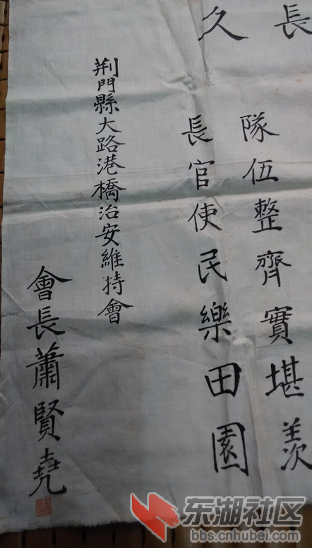 長久
隊伍整齊實堪羨
長官使民樂田園
荆門縣大路港橋治安維持會
會長蕭賢堯
东湖社区
bbs.cnhubei.com